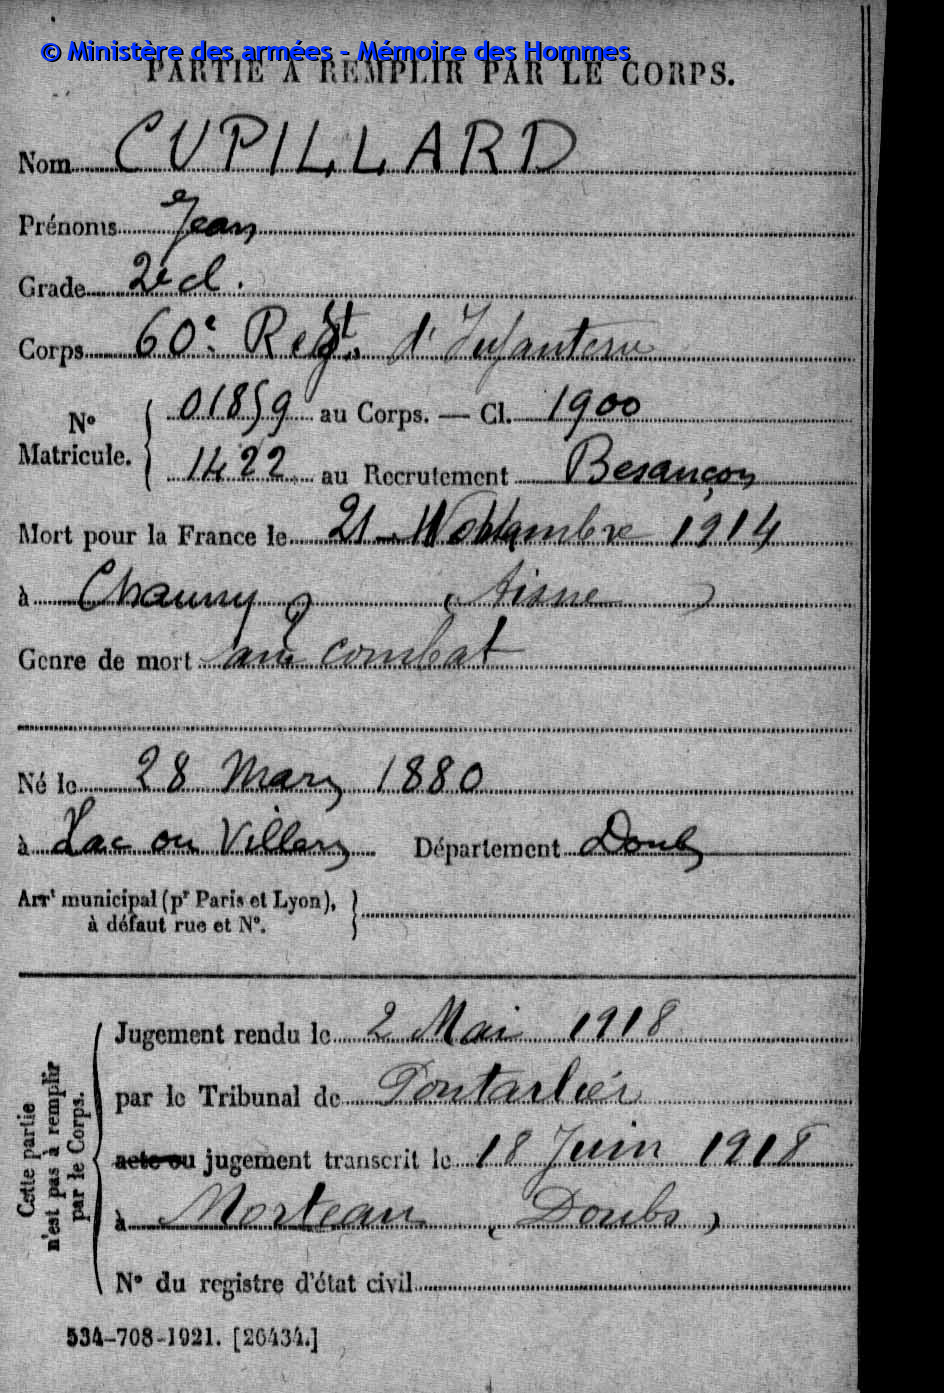 © Ministère des armées - Mémoire des Hommes
PARTIE À REMPLIR PAR LE CORPS.
Nom CUPILLARD
Prénoms Jean
Grade 2e cl.
Corps 60e Regt d'Infanterie
No Matricule. { 01859 au Corps. — Cl. 1900
1422 au Recrutement Besançon
Mort pour la France le 21 Novembre 1914
à Chauny (Aisne)
Genre de mort au combat
Né le 28 Mars 1880
à Lac ou Villers Département Doubs
Arrt municipal (pr Paris et Lyon),
à défaut rue et No.
Cette partie
n'est pas à remplir
par le Corps.
Jugement rendu le 2 Mai 1918
par le Tribunal de Pontarlier
acte ou jugement transcrit le 18 Juin 1918
à Morteau (Doubs)
No du registre d'état civil
534-708-1921. [26434.]